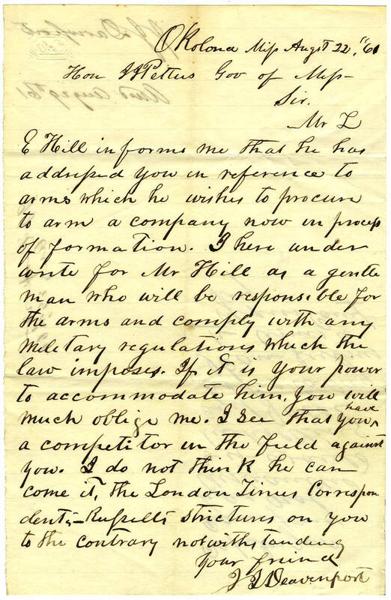 Okolona Miss Augst 22, '61
Hon JJ Pettus Gov of Miss
Sir.
Mr L
E Hill informs me that he has
addressed you in reference to
arms which he wishes to procure
to arm a company now in process
of formation. I here under
write for Mr Hill as a gentle
man who will be responsible for
the arms and comply with any
Military regulations which the
law imposes. If it is your power
to accommodate him, you will
much oblige me. I see that you have
a competitor in the field against
you. I do not think he can
come it, the London Times Correspon
dent, Russell's strictures on you
to the contrary notwithstanding
Your friend
J J Deavenport